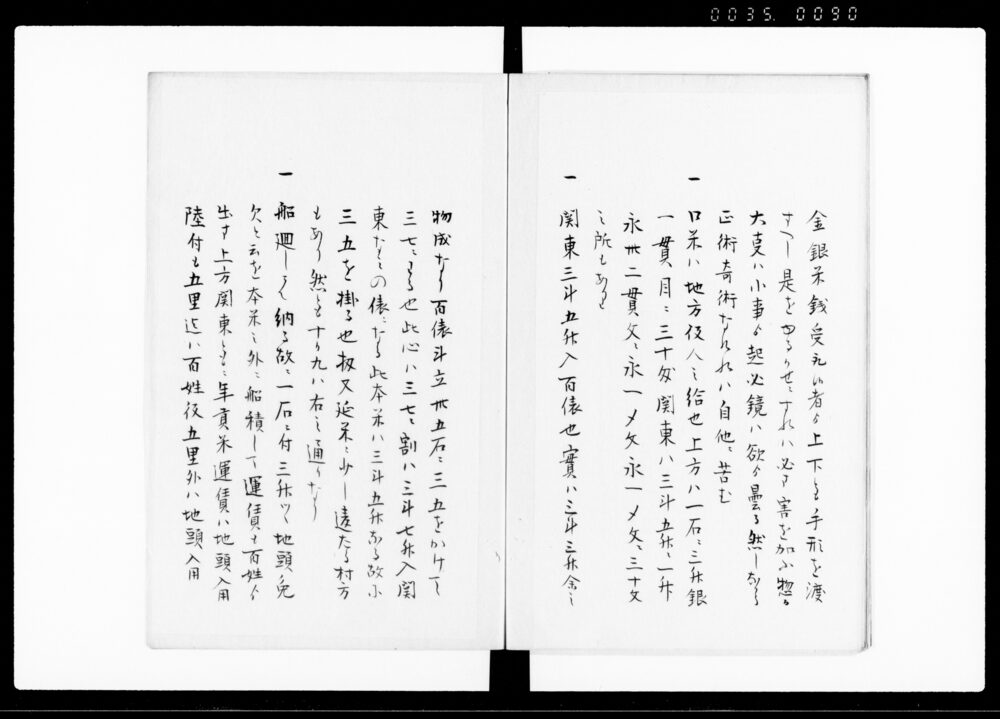 0035. 0090
金銀米銭受取候者ゟ上下とも手形を渡
すへし是をゆるかせニすれハ必す害を加ふ惣而
大事ハ小事ゟ起必鏡ハ欲ゟ曇る然しなから
正術奇術なくれハ自他ニ苦む
一
口米ハ地方役人之給也上方ハ一石ニ三升銀
一貫目ニ三十匁関東ハ三斗五升ニ一升
永卅二貫文ニ永一〆文永一〆文ニ三十文
之所もあり
一
関東三斗五升入百俵也實ハ三斗三升余之
物成なり百俵斗立卅五石ニ三五をかけて
三七ニする也此心ハ三七ニ割ハ三斗七升入関
東なミの俵ニなる此本米ハ三斗五升なる故に
三五を掛る也扨又延米ニ少し遠たる村方
もあり然とも十か九ハ右之通りなり
一
船廻しニて納る故ニ一石ニ付三升ツヽ地頭免
欠と云を本米之外ニ船積して運賃も百姓ゟ
出す上方関東とも年貢米運賃ハ地頭入用
陸付も五里迄ハ百姓役五里外ハ地頭入用